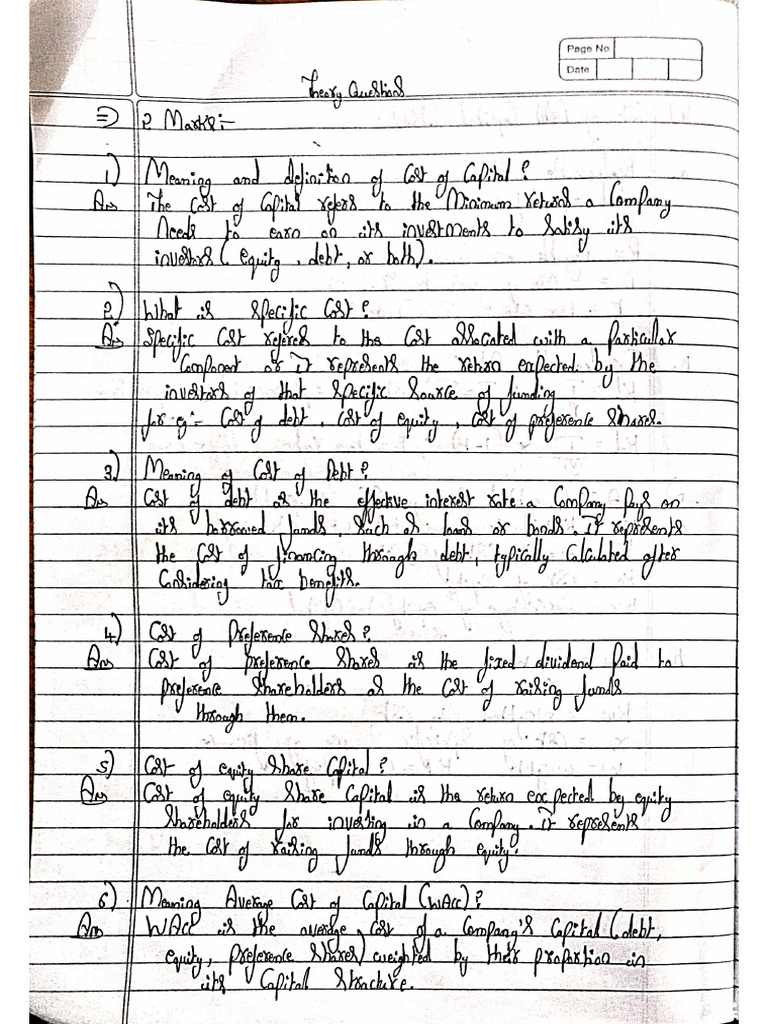 Page No
Date
Theory Questions
=) 2 Marks:-
1) Meaning and definition of Cost of Capital?
Ans The Cost of Capital refers to the Minimum returns a Company
Needs to earn on its investments to satisfy its
investors (equity, debt, or both).
2) What is Specific Cost?
Ans Specific Cost referes to the Cost associated with a particular
Component or it represents the return expected by the
investors of that specific source of funding
for eg:- Cost of debt, Cost of equity, Cost of preference Shares.
3) Meaning of Cost of Debt?
Ans Cost of debt is the effective interest rate a Company pays on
its borrowed funds, Such as loans or bonds. It represents
the Cost of financing through debt, typically Calculated after
Considering tax benefits.
4) Cost of Preference Shares?
Ans Cost of preference Shares is the fixed dividend Paid to
preference shareholders as the Cost of raising funds
through them.
5) Cost of equity Share Capital?
Ans Cost of equity Share Capital is the return expected by equity
Shareholders for investing in a Company. It represents
the Cost of raising funds through equity.
6) Meaning Average Cost of Capital (WACC)?
Ans WACC is the average Cost of a Company's Capital (debt,
equity, preference Shares) weighted by their proportion in
its Capital Structure.